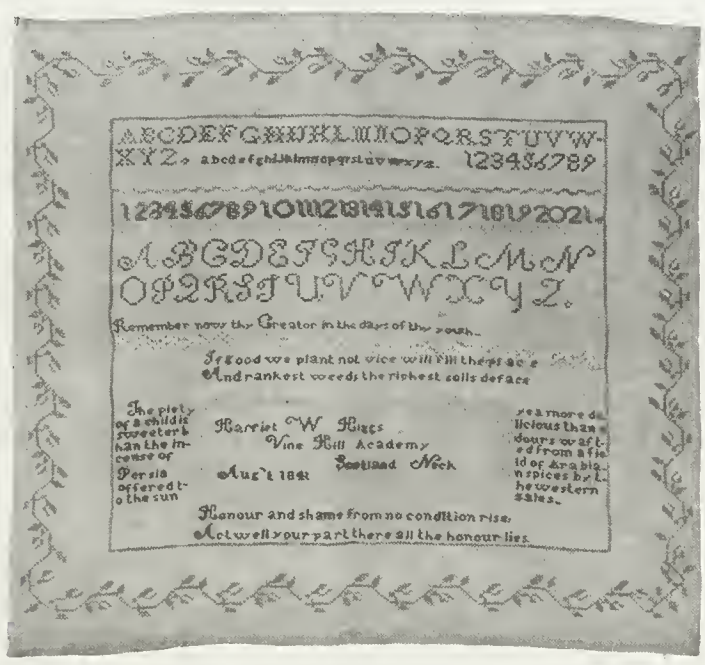 ABCDEFGHIJKLMNOPQRSTUVW
XYZ. abcdefghijklmnopqrstuvwxyz. 123456789
123456789101112131415161718192021.
ABCDEFGHIJKLMN
OPQRSTUVWXYZ.
Remember now thy Creator in the days of thy youth.
If good we plant not vice will fill the place
And rankest weeds the richest soils deface
The piety
of a child is
sweeter t
han the in-
cense of
Persia
offered t-
o the sun
yea more de
licious than o
dours waft-
ed from a fie
ld of Arabia-
n spices by t-
he western
gales.
Harriet W Higgs
Vine Hill Academy
Scotland Neck
Aug't
Honour and shame from no condition rise,
Act well your part there all the honour lies